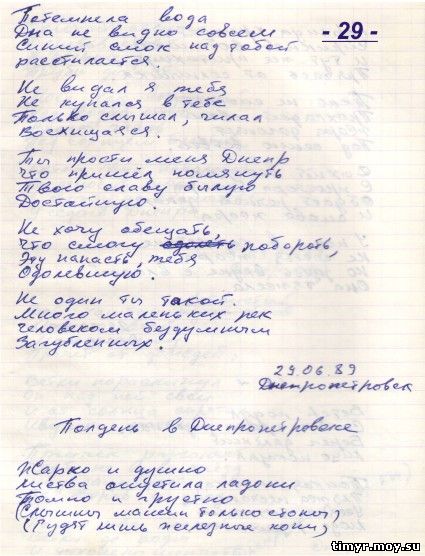 - 29 -
Потемнела вода
Дна не видно совсем
Синий смок над тобой
расстилается.
Не видал я тебя
Не купался в тебе
Только слышал, читал
Восхищаяся.
Ты прости меня Днепр
Что пришёл помянуть
Твою славу былую
Достойную.
Не хочу обещать,
Что смогу одолеть побороть,
Эту напасть, тебя
Одолевшую.
Не один ты такой.
Много маленьких рек
Человеком бездумным
Загубленных.
29.06.89
Днепропетровск
Полдень в Днепропетровске
Жарко и душно
Листва опустила ладони
Томно и грустно
(Слышны машин только стоны)
(Гудят лишь железные кони)
timyr.moy.su